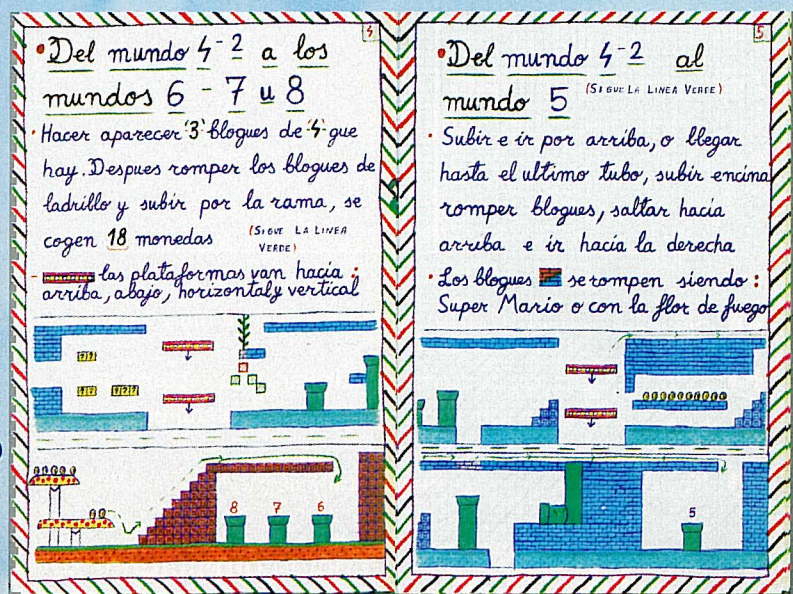 4
• Del mundo 4-2 a los
mundos 6 - 7 u 8
• Hacer aparecer '3' blogues de '4' gue
hay. Despues romper los blogues de
ladrillo y subir por la rama, se
cogen 18 monedas (SIGUE LA LINEA
VERDE)
- las plataformas van hacía :
arriba, abajo, horizontal y vertical
8 7 6
5
• Del mundo 4-2 al
mundo 5 (SIGUE LA LINEA VERDE)
• Subir e ir por arriba, o llegar
hasta el ultimo tubo, subir encima
romper blogues, saltar hacía
arriba e ir hacía la derecha
• Los blogues se rompen siendo :
Super Mario o con la flor de fuego
5